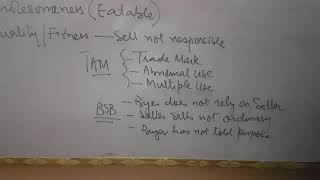 olesomeness (Eatable)
uality / Fitness — Sell not responsible
TAM — Trade Mark
— Abnormal Use
— Multiple Use
BSB — Byer does not rely on Seller
— Seller sells not ordinary
— Byer has not told purpose